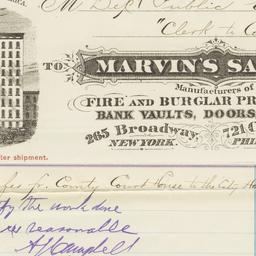 M Dept Public
"Clerk to Co
TO MARVIN'S SA
Manufacturers of
FIRE AND BURGLAR PR
BANK VAULTS, DOORS
265 Broadway, 721 C
NEW YORK. PHI
ter shipment.
fes fr. County Court House to the City Ha
fy the work done
es reasonable
A J Campbell